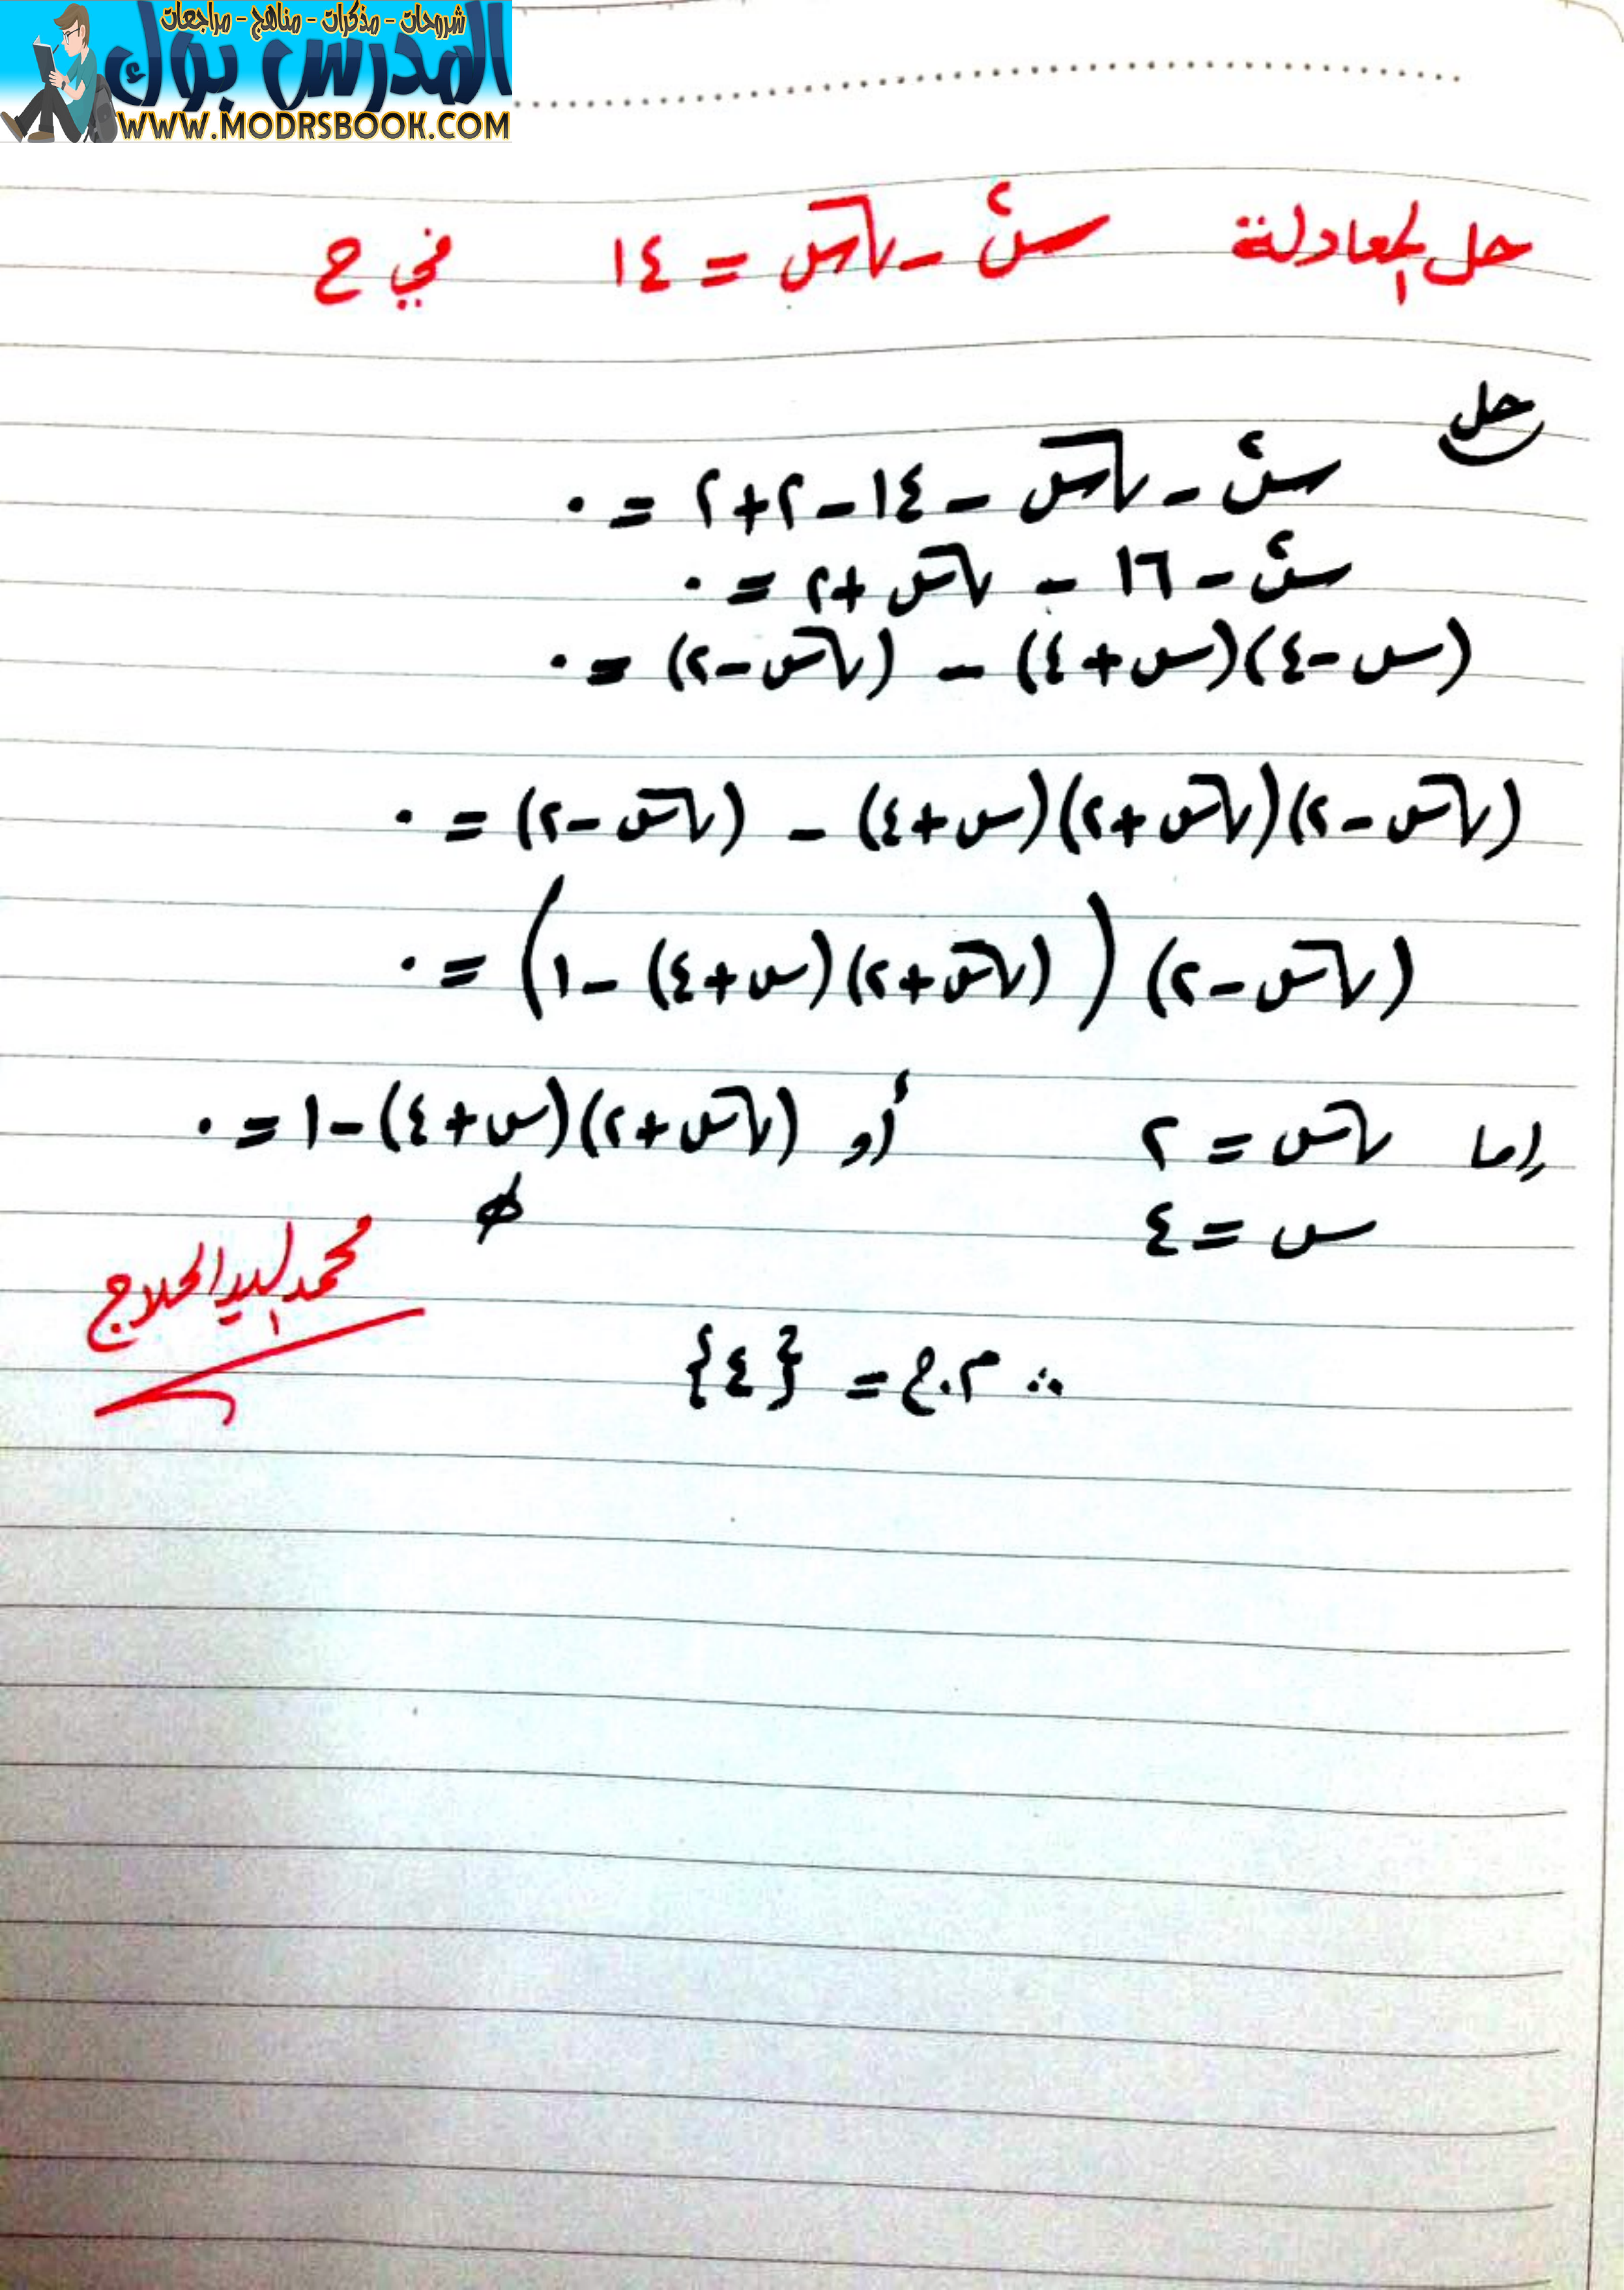 شروحات - مذكرات - مناهج - مراجعات
المدرس بوك
WWW.MODRSBOOK.COM
حل المعادلة س² - √س = ١٤ في ح
حل
س² - √س - ١٤ - ٢ + ٢ = ٠
س² - ١٦ - √س + ٢ = ٠
(س - ٤)(س + ٤) - (√س - ٢) = ٠
(√س - ٢)(√س + ٢)(س + ٤) - (√س - ٢) = ٠
(√س - ٢) ((√س + ٢)(س + ٤) - ١) = ٠
إما √س = ٢ أو (√س + ٢)(س + ٤) - ١ = ٠
س = ٤ ∅
محمد السيد الحلاج
∴ م.ح = {٤}